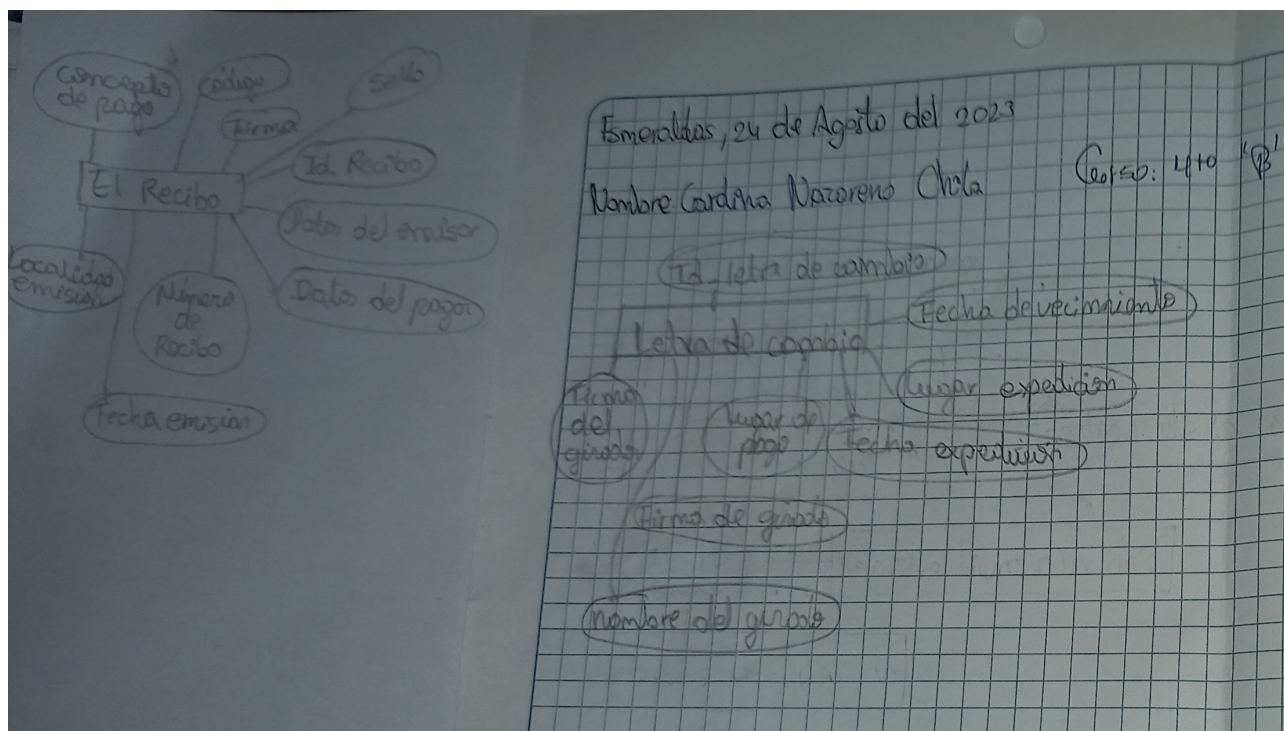 Concepto
de pago
Código
Firma
Sello
Id Recibo
El Recibo
Datos del emisor
Datos del pagor
Localidad
emisión
Número
de
Recibo
Fecha emisión
Esmeraldas, 24 de Agosto del 2023
Nombre Nazareno Chola
4to "B"
Id_letra de cambio
Letra de cambio
Fecha de vecimniento
Lugar expedición
Firma
del
girado
Lugar de
pago
Fecha expedición
Firma de girado
nombre del girado